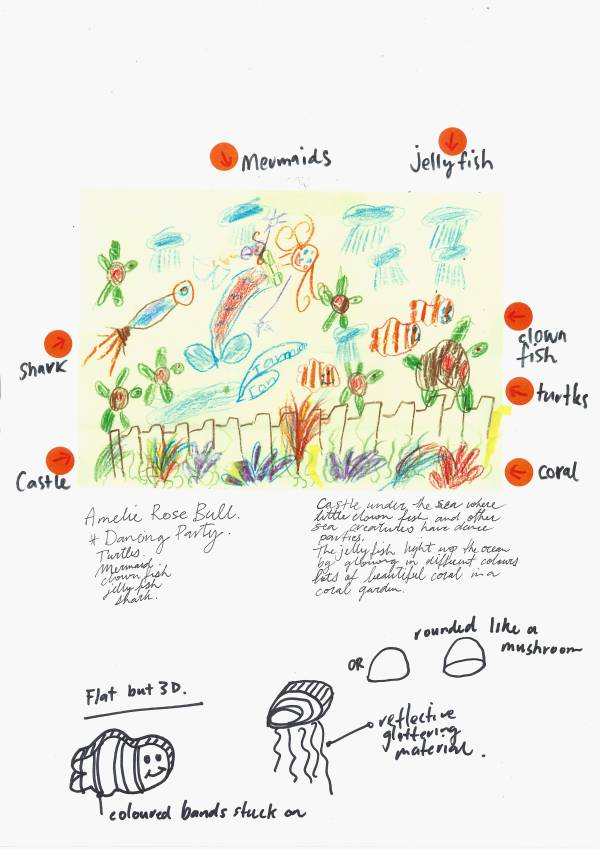 Mermaids
jellyfish
shark
clown
fish
turtles
Castle
coral
Amelie Rose Bull.
# Dancing Party.
Turtles.
Mermaid
clown fish
jelly fish
shark.
Castle under the sea where
little clown fish and other
sea creatures have dance
parties.
The jelly fish light up the ocean
by glowing in different colours
lots of beautiful coral in a
coral garden.
rounded like a
mushroom
OR
Flat but 3D.
reflective
glittering
material.
coloured bands stuck on